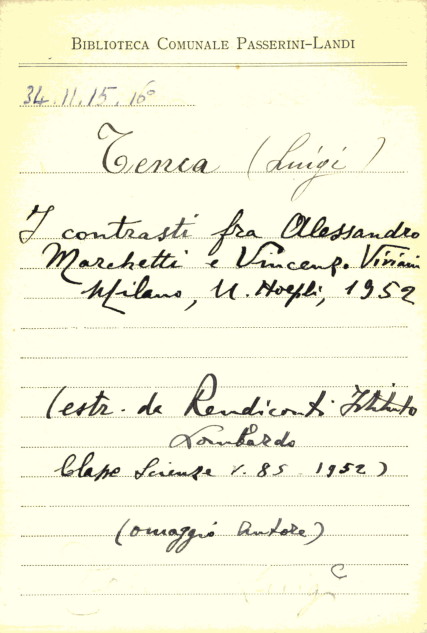 BIBLIOTECA COMUNALE PASSERINI-LANDI
34.11.15.16°
Tenca (Luigi)
I contrasti fra Alessandro
Marchetti e Vincenzo Viviani
Milano, U. Hoepli, 1952
(estr. da Rendiconti Istituto
Lombardo
Classe Scienze v. 85 1952)
(omaggio autore)
C